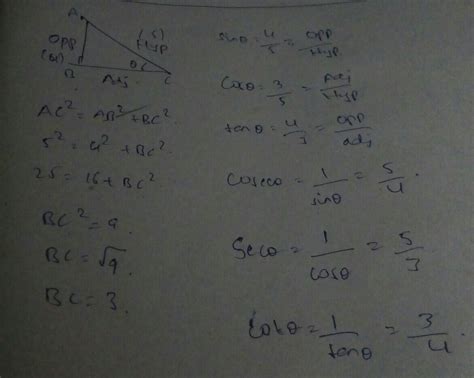 A
(5)
Hyp
Opp
(4)
B
θ
C
Adj
AC² = AB² + BC²
5² = 4² + BC²
25 = 16 + BC²
BC² = 9.
BC = √9.
BC = 3.
sinθ = 4/5 = opp/Hyp
Cosθ = 3/5 = Adj/Hyp
tanθ = 4/3 = opp/adj
Cosecθ = 1/sinθ = 5/4.
Secθ = 1/cosθ = 5/3
Cotθ = 1/tanθ = 3/4.